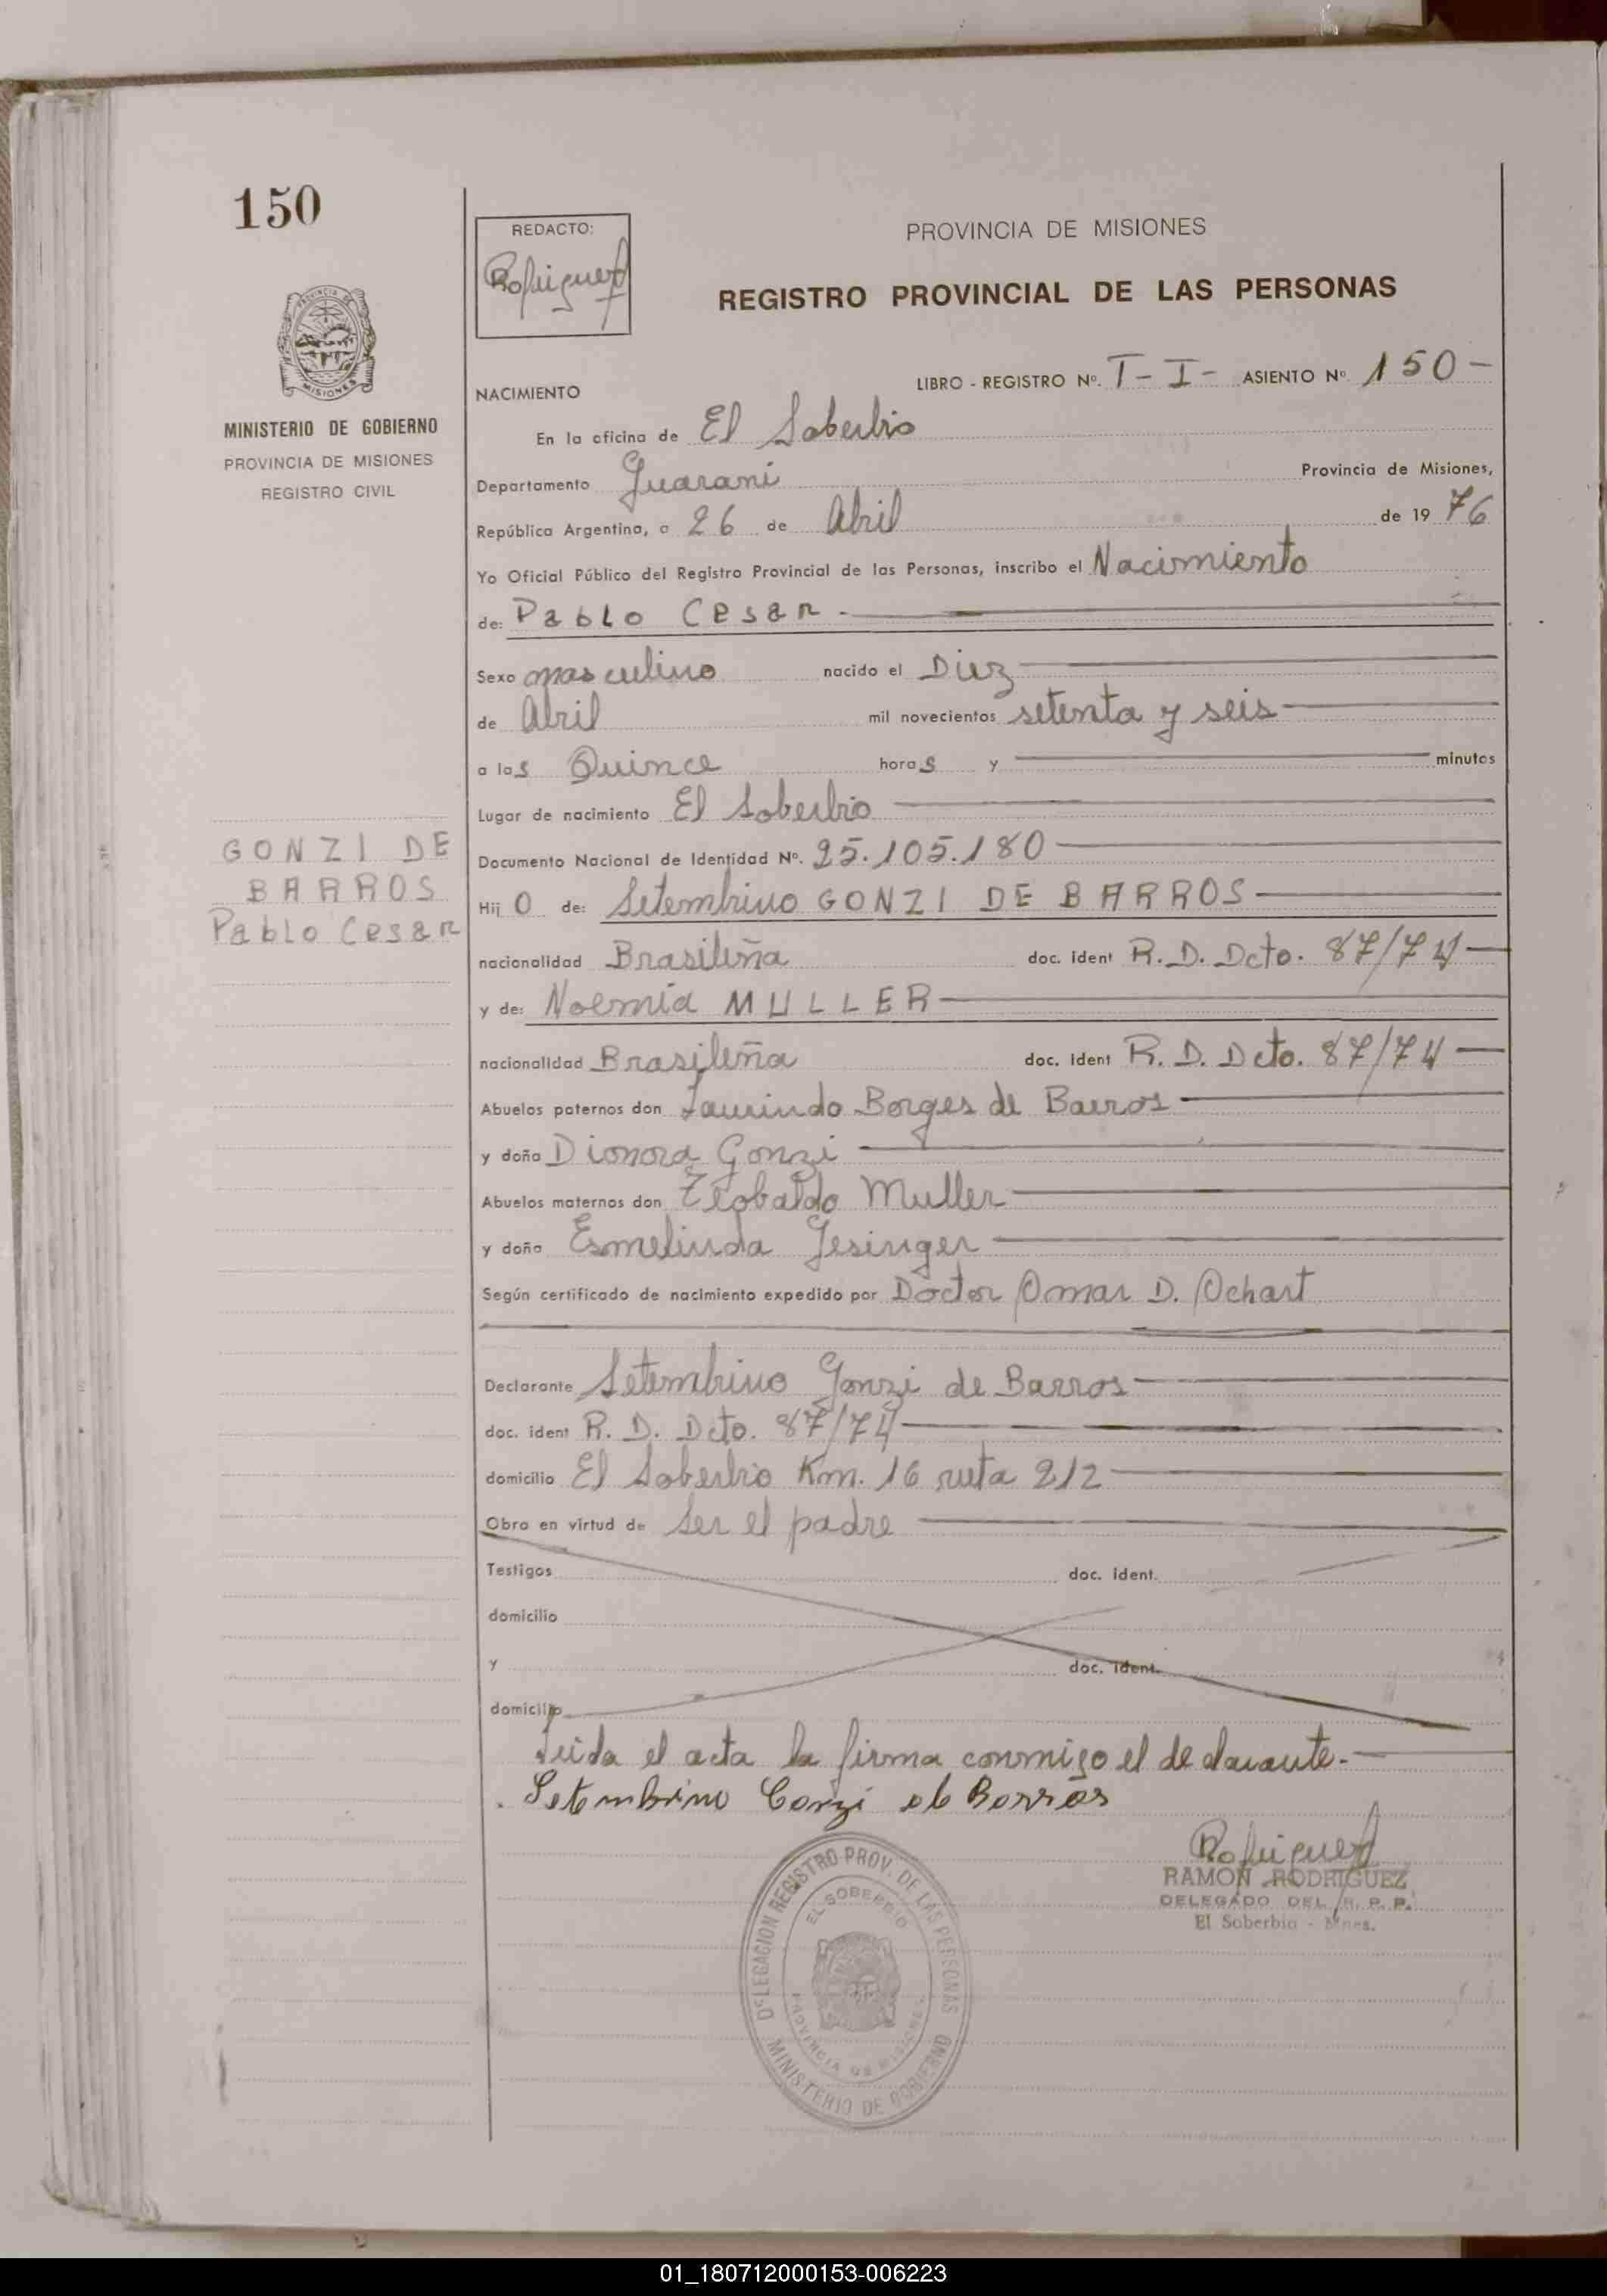 150
REDACTO:
Rodriguez
PROVINCIA DE MISIONES
REGISTRO PROVINCIAL DE LAS PERSONAS
PROVINCIA DE
MISIONES
MINISTERIO DE GOBIERNO
PROVINCIA DE MISIONES
REGISTRO CIVIL
NACIMIENTO
LIBRO - REGISTRO Nº. T - I - ASIENTO Nº. 150 -
En la oficina de El Soberbio
Departamento Guarani Provincia de Misiones,
República Argentina, a 26 de Abril de 1976
Yo Oficial Público del Registro Provincial de las Personas, inscribo el Nacimiento
de: Pablo Cesar -
Sexo masculino nacido el Diez
de Abril mil novecientos setenta y seis
a las Quince horas y minutos
Lugar de nacimiento El Soberbio
Documento Nacional de Identidad Nº. 25.105.180
GONZI DE
BARROS
Pablo Cesar
Hijo de: Setembrino GONZI DE BARROS
nacionalidad Brasileña doc. ident R. D. Dcto. 87/74
y de: Noemia MULLER
nacionalidad Brasileña doc. ident R. D. Dcto. 87/74
Abuelos paternos don Laurindo Borges de Barros
y doña Dionora Gonzi
Abuelos maternos don Teobaldo Muller
y doña Esmelinda Jesinger
Según certificado de nacimiento expedido por Doctor Omar D. Ochart
Declarante Setembrino Gonzi de Barros
doc. ident R. D. Dcto. 87/74
domicilio El Soberbio Km. 16 ruta 212
Obra en virtud de Ser el padre
Testigos doc. ident.
domicilio
y doc. ident.
domicilio
Leida el acta la firma conmigo el declarante.
Setembrino Gonzi de Barros
Rodriguez
RAMON RODRIGUEZ
DELEGADO DEL R. P. P.
El Soberbio - Mnes.
DELEGACION REGISTRO PROV. DE LAS PERSONAS
EL SOBERBIO
PROVINCIA DE MISIONES
MINISTERIO DE GOBIERNO
01_180712000153-006223